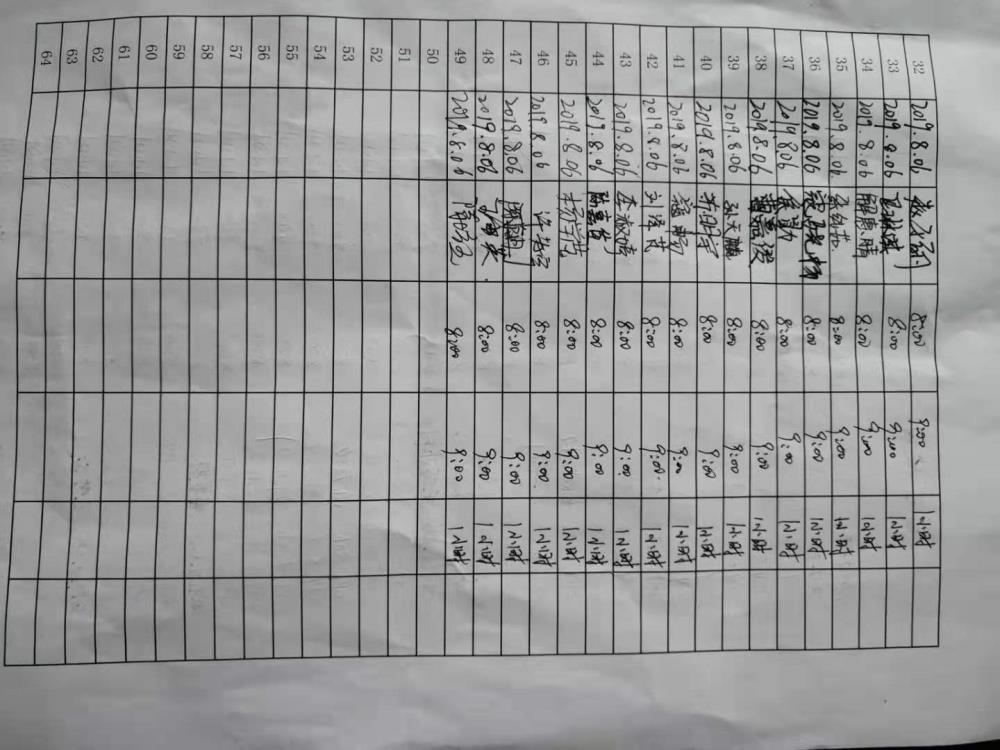 32 2019.8.06 8:00 9:00 1小时
33 2019.8.06 8:00 9:00 1小时
34 2019.8.06 8:00 9:00 1小时
35 2019.8.06 8:00 9:00 1小时
36 2019.8.06 8:00 9:00 1小时
37 2019.8.06 8:00 9:00 1小时
38 2019.8.06 8:00 9:00 1小时
39 2019.8.06 孙天鹏 8:00 9:00 1小时
40 2019.8.06 8:00 9:00 1小时
41 2019.8.06 8:00 9:00 1小时
42 2019.8.06 8:00 9:00 1小时
43 2019.8.06 8:00 9:00 1小时
44 2019.8.06 8:00 9:00 1小时
45 2019.8.06 8:00 9:00 1小时
46 2019.8.06 8:00 9:00 1小时
47 2019.8.06 8:00 9:00 1小时
48 2019.8.06 8:00 9:00 1小时
49 2019.8.06 8:00 9:00 1小时
50
51
52
53
54
55
56
57
58
59
60
61
62
63
64